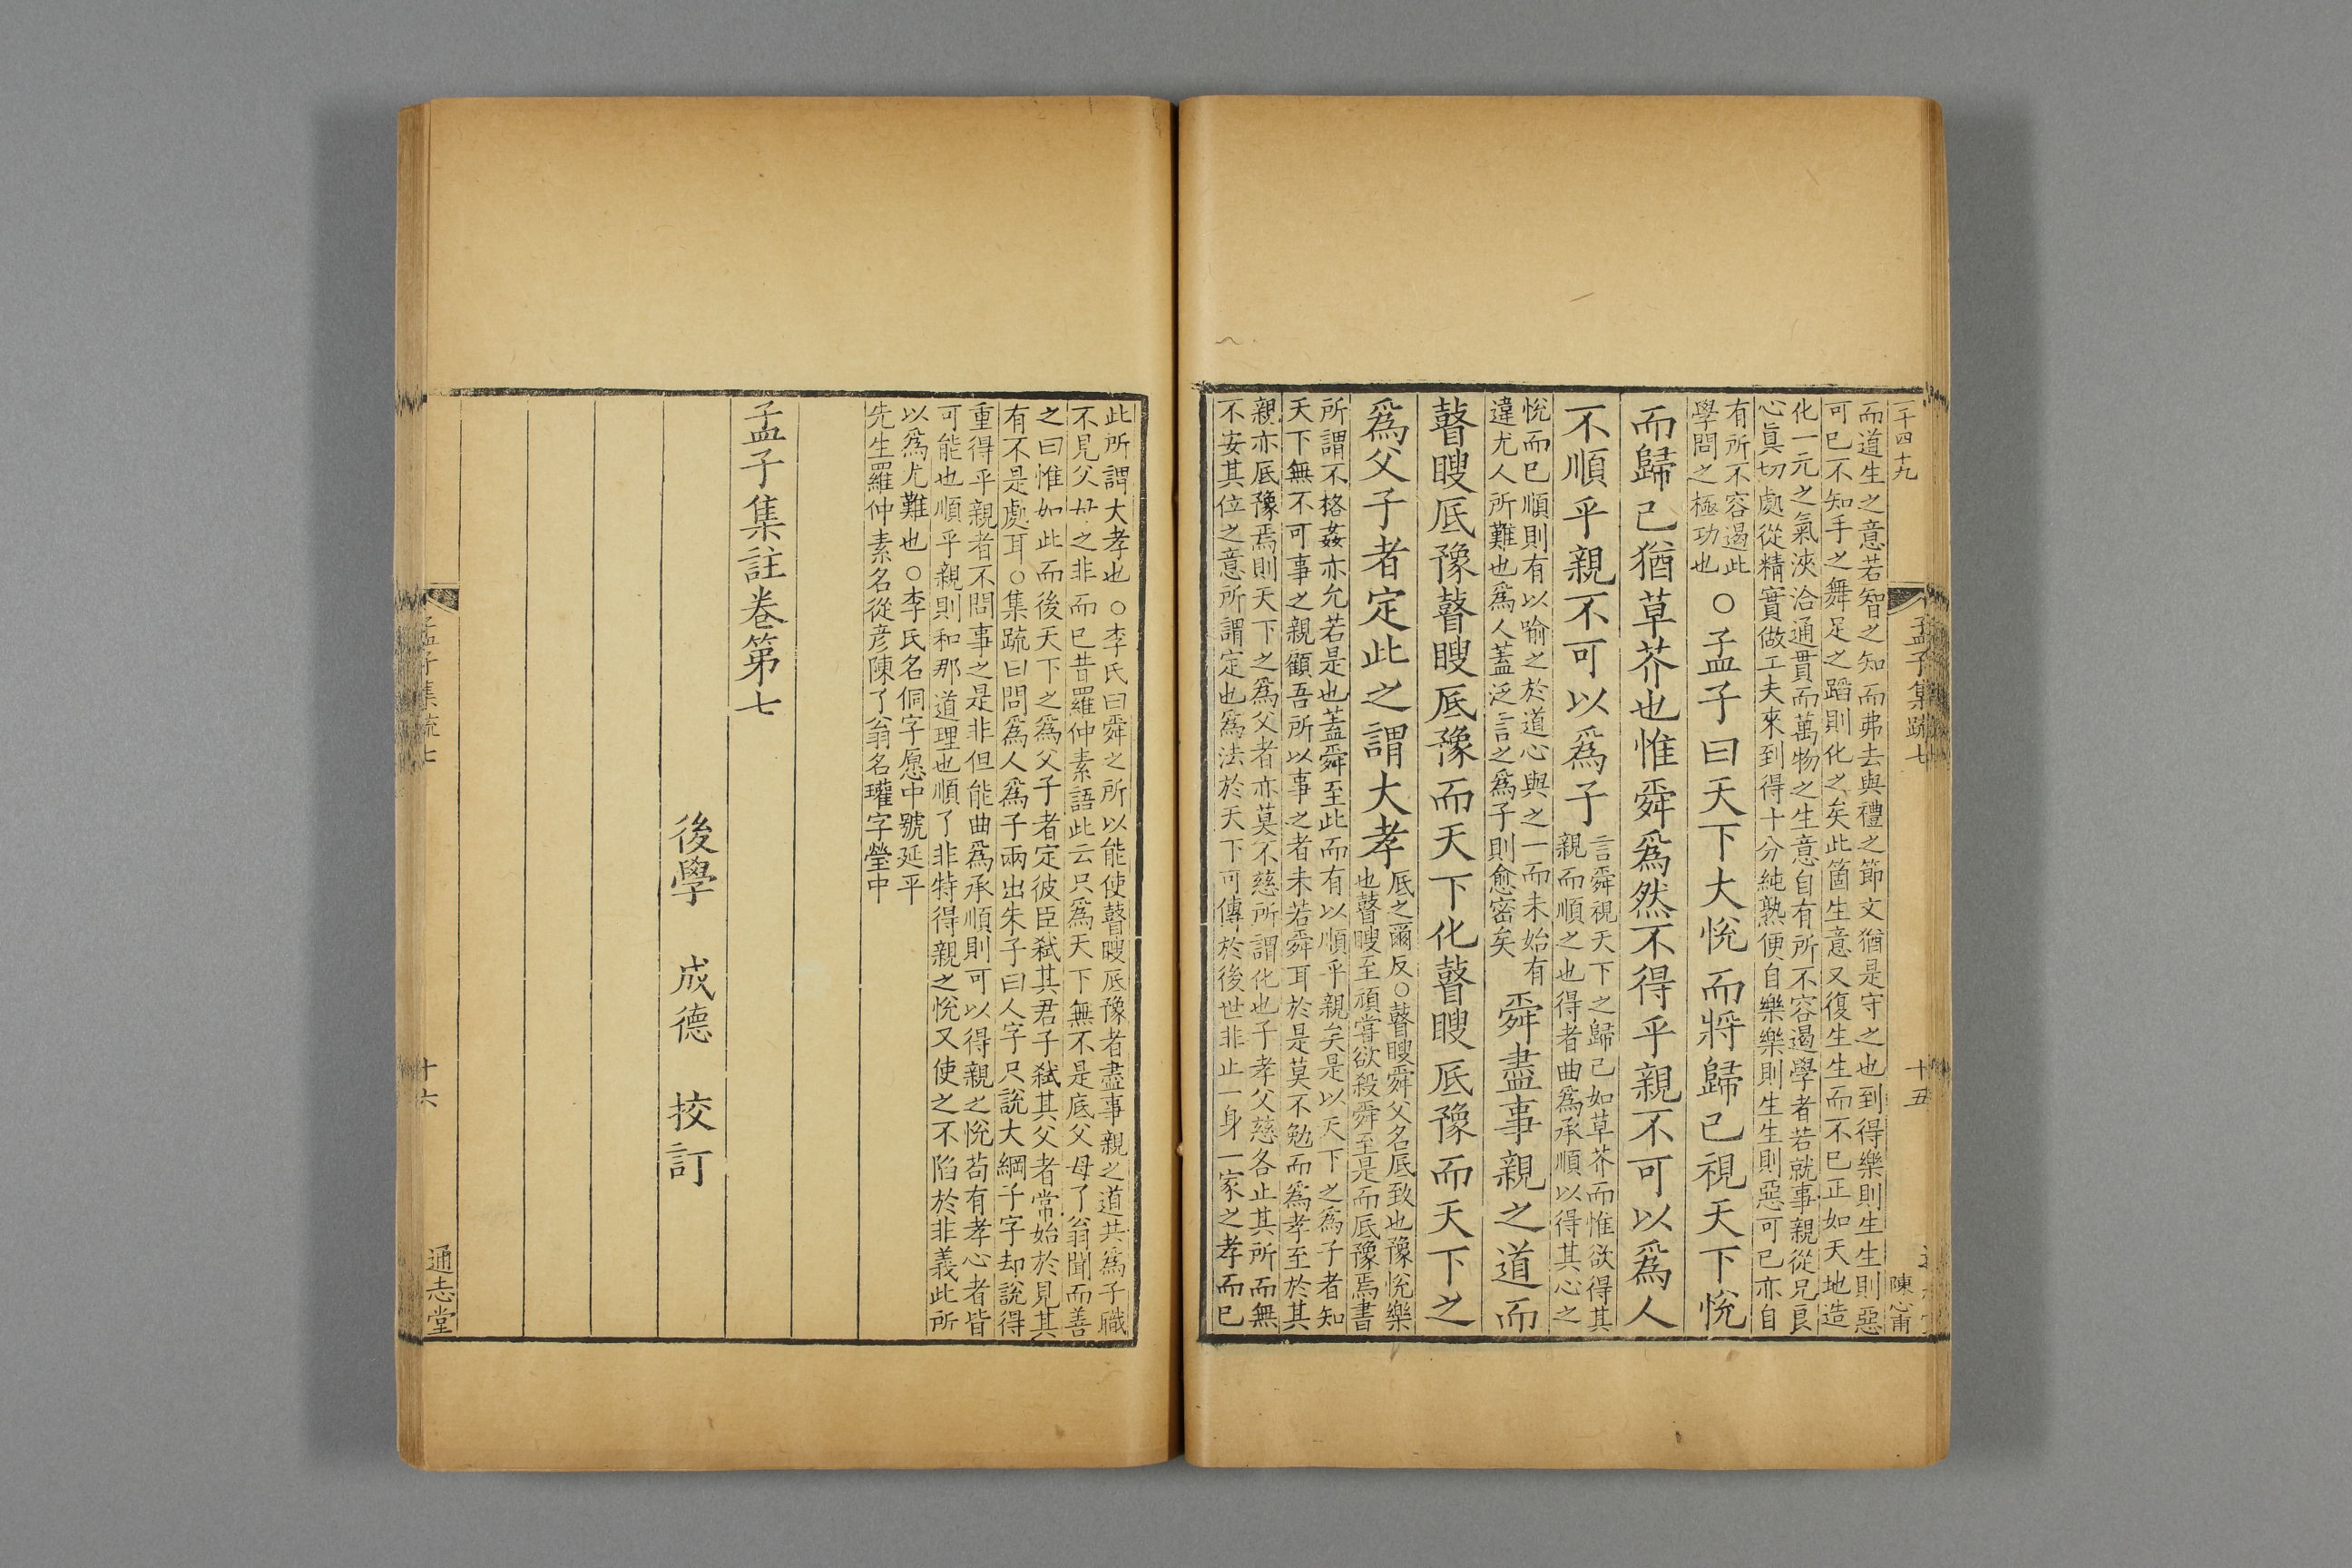 二千四十九
孟子集疏七
十五
陳心甫
而道生之意若智之知而弗去與禮之節文猶是守之也到得樂則生生則惡
可已不知手之舞足之蹈則化之矣此箇生意又復生生而不已正如天地造
化一元之氣浹洽通貫而萬物之生意自有所不容遏學者若就事親從兄良
心眞切處從精實做工夫來到得十分純熟便自樂樂則生生則惡可已亦自
有所不容遏此
學問之極功也
○孟子曰天下大悅而將歸己視天下悅
而歸己猶草芥也惟舜爲然不得乎親不可以爲人
不順乎親不可以爲子
言舜視天下之歸己如草芥而惟欲得其
親而順之也得者曲爲承順以得其心之
悅而已順則有以喻之於道心與之一而未始有
違尤人所難也爲人蓋泛言之爲子則愈密矣
舜盡事親之道而
瞽瞍厎豫瞽瞍厎豫而天下化瞽瞍厎豫而天下之
爲父子者定此之謂大孝
厎之爾反○瞽瞍舜父名厎致也豫悅樂
也瞽瞍至頑嘗欲殺舜至是而厎豫焉書
所謂不格姦亦允若是也蓋舜至此而有以順乎親矣是以天下之爲子者知
天下無不可事之親顧吾所以事之者未若舜耳於是莫不勉而爲孝至於其
親亦厎豫焉則天下之爲父者亦莫不慈所謂化也子孝父慈各止其所而無
不安其位之意所謂定也爲法於天下可傳於後世非止一身一家之孝而已
此所謂大孝也○李氏曰舜之所以能使瞽瞍厎豫者盡事親之道共爲子職
不見父母之非而已昔羅仲素語此云只爲天下無不是底父母了翁聞而善
之曰惟如此而後天下之爲父子者定彼臣弒其君子弒其父者常始於見其
有不是處耳○集疏曰問爲人爲子兩出朱子曰人字只說大綱子字却說得
重得乎親者不問事之是非但能曲爲承順則可以得親之悅苟有孝心者皆
可能也順乎親則和那道理也順了非特得親之悅又使之不陷於非義此所
以爲尤難也○李氏名侗字愿中號延平
先生羅仲素名從彦陳了翁名瓘字瑩中
孟子集註卷第七
後學 成德 挍訂
孟子集疏七
十六
通志堂